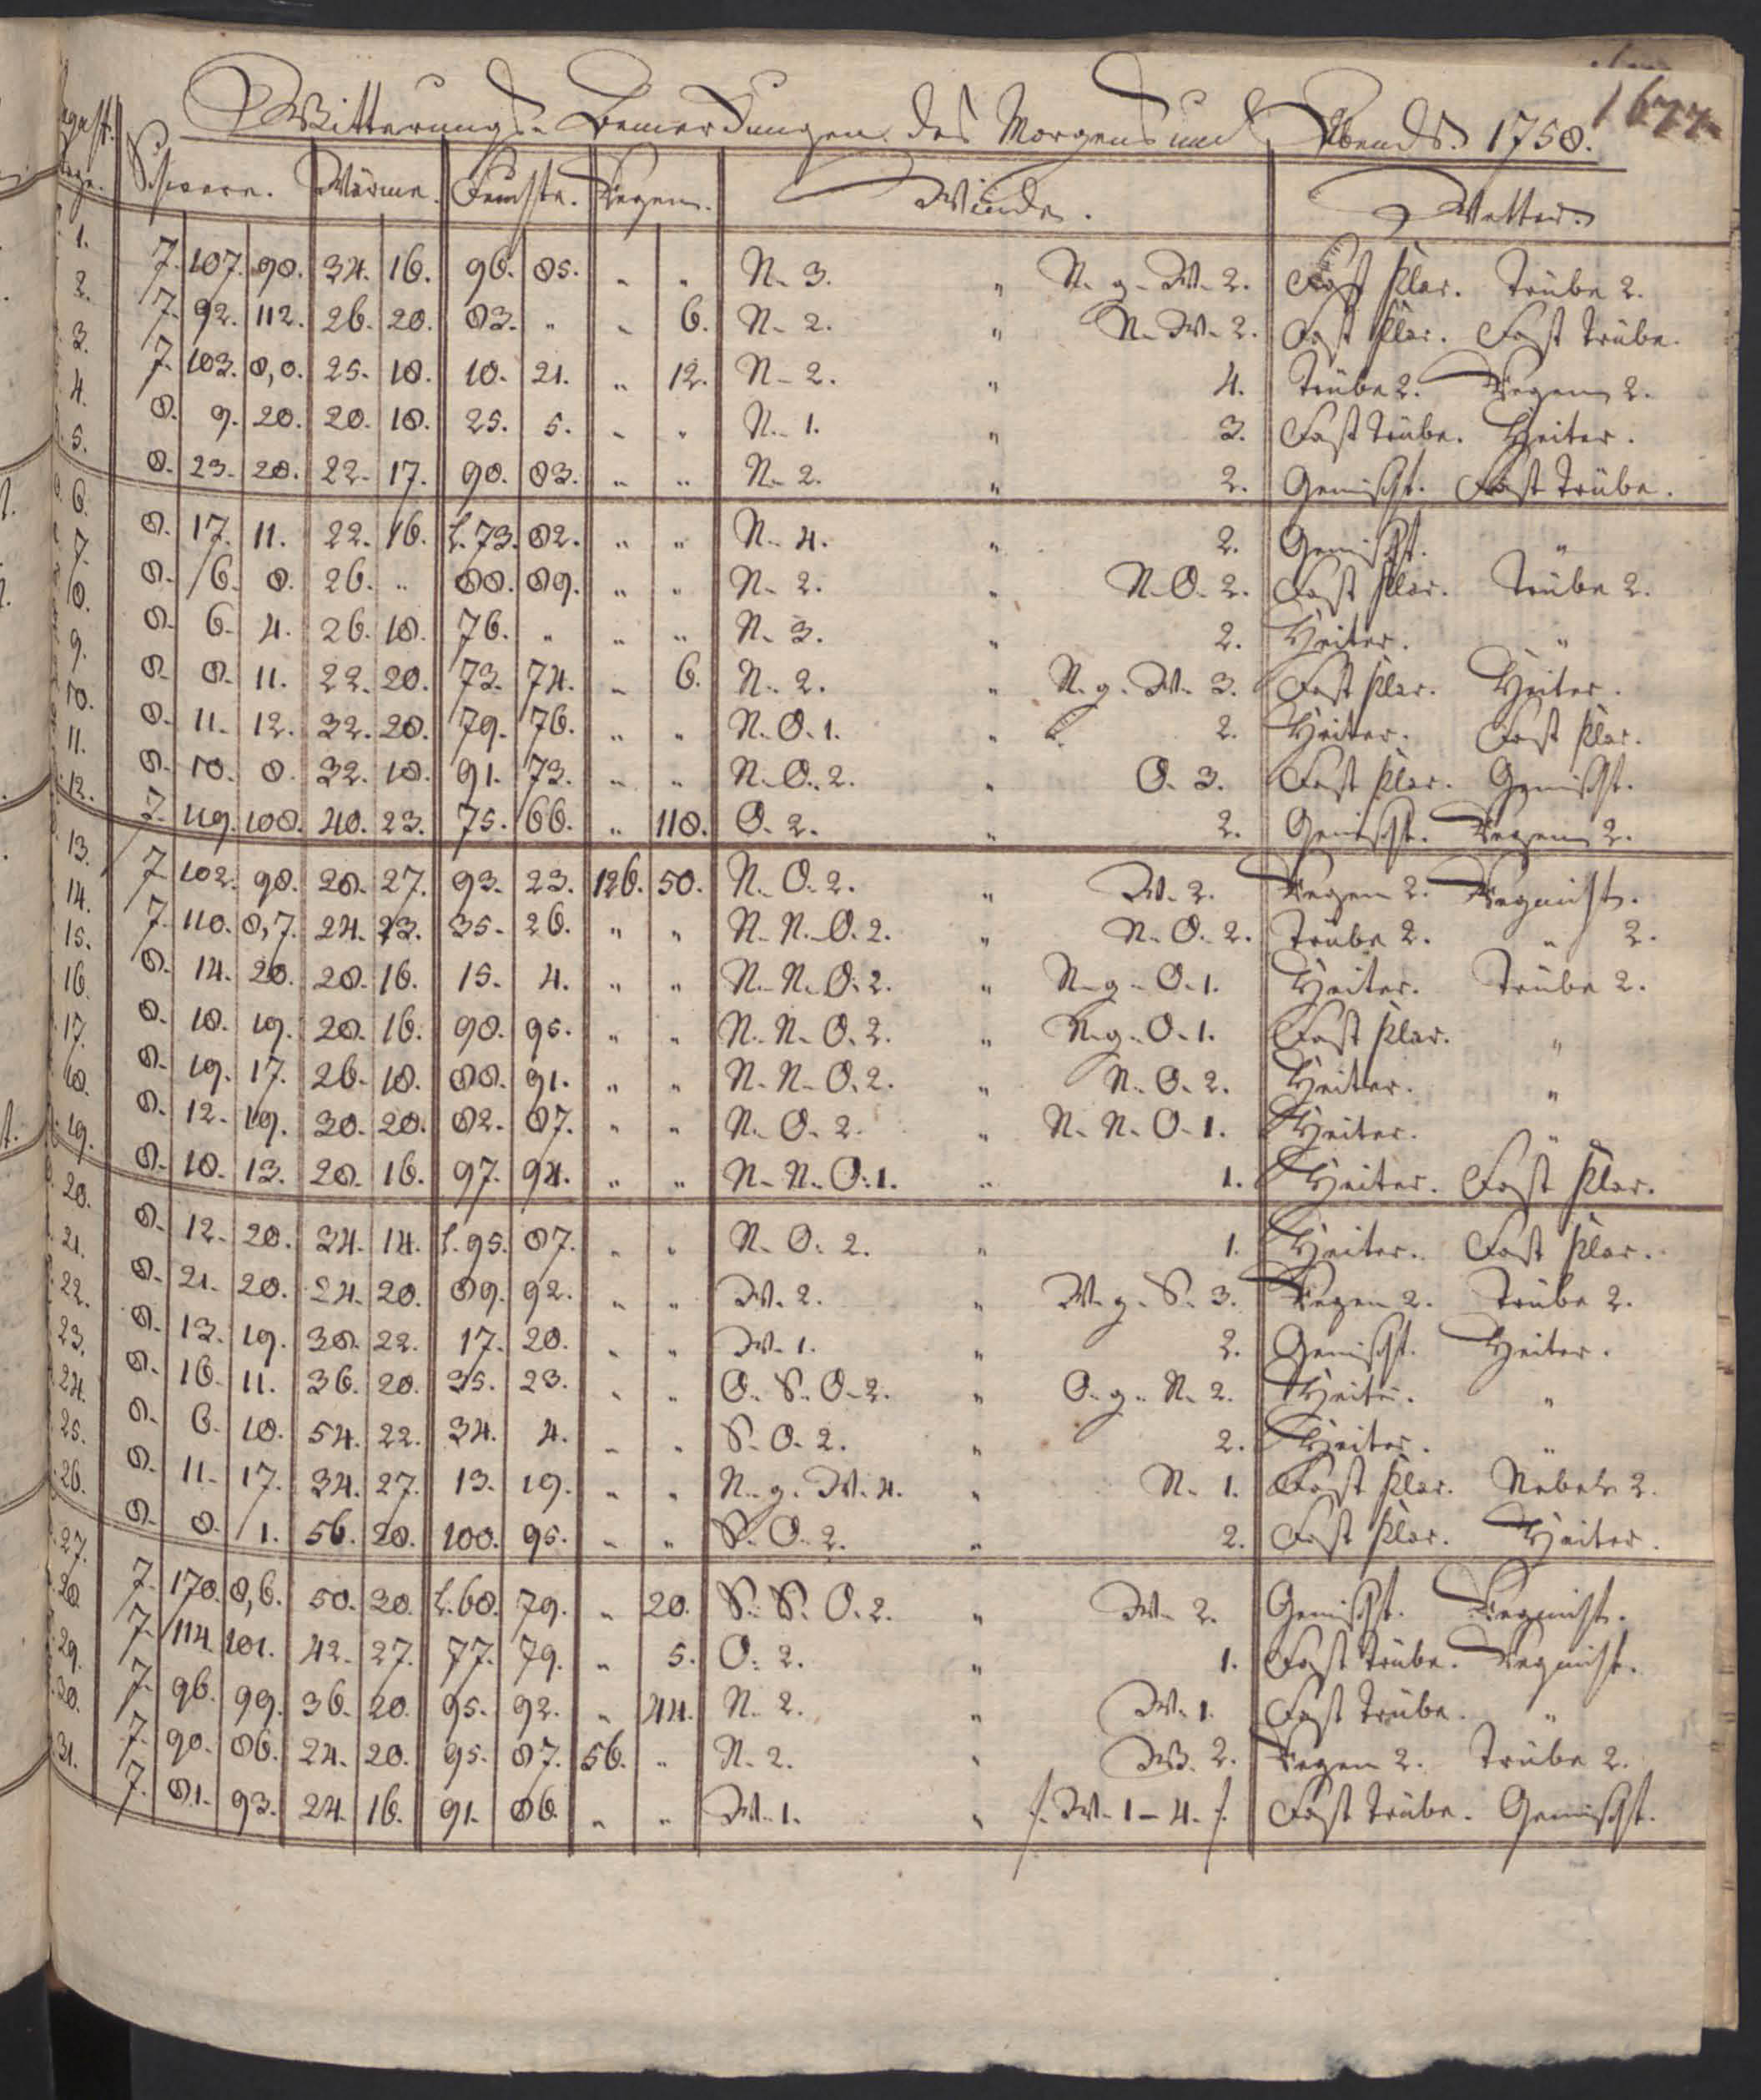 1677
Witterungs-Bemerckungen des Morgens und Abends. 1758.
Schwere. Wärme. Feuchte. Regen. Winde. Wetter.
1. 7. 107. 98. 34. 16. 96. 85. " " N. 3. " N. g. W. 2. Fast klar. Trübe 2.
2. 7. 92. 112. 26. 20. 83. " " 6. N. 2. " N. W. 2. Fast klar. Fast trübe.
3. 7. 103. 8,0. 25. 18. 10. 21. " 12. N. 2. " 4. Trübe 2. Regen 2.
4. 8. 9. 20. 20. 18. 25. 5. " " N. 1. " 3. Fast trübe. Heiter.
5. 8. 23. 28. 22. 17. 98. 83. " " N. 2. " 2. Gemischt. Fast trübe.
6. 8. 17. 11. 22. 16. L. 73. 82. " " N. 4. " 2. Gemischt. "
7. 8. 6. 8. 26. " 88. 89. " " N. 2. " N. O. 2. Fast klar. Trübe 2.
8. 8. 6. 4. 26. 18. 76. " " " N. 3. " 2. Heiter. "
9. 8. 8. 11. 22. 20. 73. 74. " 6. N. 2. " N. g. W. 3. Fast klar. Heiter.
10. 8. 11. 12. 32. 20. 79. 76. " " N. O. 1. " 2. Heiter. Fast klar.
11. 8. 10. 8. 32. 18. 91. 73. " " N. O. 2. " O. 3. Fast klar. Gemischt.
12. 7. 119. 108. 40. 23. 75. 66. " 118. O. 2. " 2. Gemischt. Regen 2.
13. 7. 102. 98. 28. 27. 93. 23. 126. 50. N. O. 2. " W. 2. Regen 2. Regnicht.
14. 7. 110. 8,7. 24. 23. 35. 26. " " N. N. O. 2. " N. O. 2. Trübe 2. " 2.
15. 8. 14. 20. 28. 16. 15. 4. " " N. N. O. 2. " N. g. O. 1. Heiter. Trübe 2.
16. 8. 18. 19. 28. 16. 98. 95. " " N. N. O. 2. " N. g. O. 1. Fast klar. "
17. 8. 19. 17. 26. 18. 88. 91. " " N. N. O. 2. " N. O. 2. Heiter. "
18. 8. 12. 19. 30. 20. 82. 87. " " N. O. 2. " N. N. O. 1. Heiter. "
19. 8. 18. 13. 28. 16. 97. 94. " " N. N. O. 1. " 1. Heiter. Fast klar.
20. 8. 12. 20. 34. 14. L. 95. 87. " " N. O. 2. " 1. Heiter. Fast klar.
21. 8. 21. 20. 24. 20. 89. 92. " " W. 2. " W. g. S. 3. Regen 2. Trübe 2.
22. 8. 13. 19. 38. 22. 17. 20. " " W. 1. " 2. Gemischt. Heiter.
23. 8. 16. 11. 36. 20. 35. 23. " " O. S. O. 2. " O. g. N. 2. Heiter. "
24. 8. 6. 18. 54. 22. 34. 4. " " S. O. 2. " 2. Heiter. "
25. 8. 11. 17. 34. 27. 13. 19. " " N. g. W. 4. " N. 1. Fast klar. Nebel 2.
26. 8. 8. 1. 56. 28. 100. 95. " " S. O. 2. " 2. Fast klar. Heiter.
27. 7. 8,6. 50. 30. L. 68. 79. " 20. S. S. O. 2. " W. 2. Gemischt. Regnicht.
28. 7. 114. 101. 42. 27. 77. 79. " 5. O. 2. " 1. Fast trübe. Regnicht.
29. 7. 96. 99. 36. 20. 95. 92. " 44. N. 2. " W. 1. Fast trübe. "
30. 7. 90. 86. 24. 20. 95. 87. 56. " N. 2. " W. 2. Regen 2. Trübe 2.
31. 7. 81. 93. 24. 16. 91. 86. " " W. 1. " /. W. 1 - 4. /. Fast trübe. Gemischt.